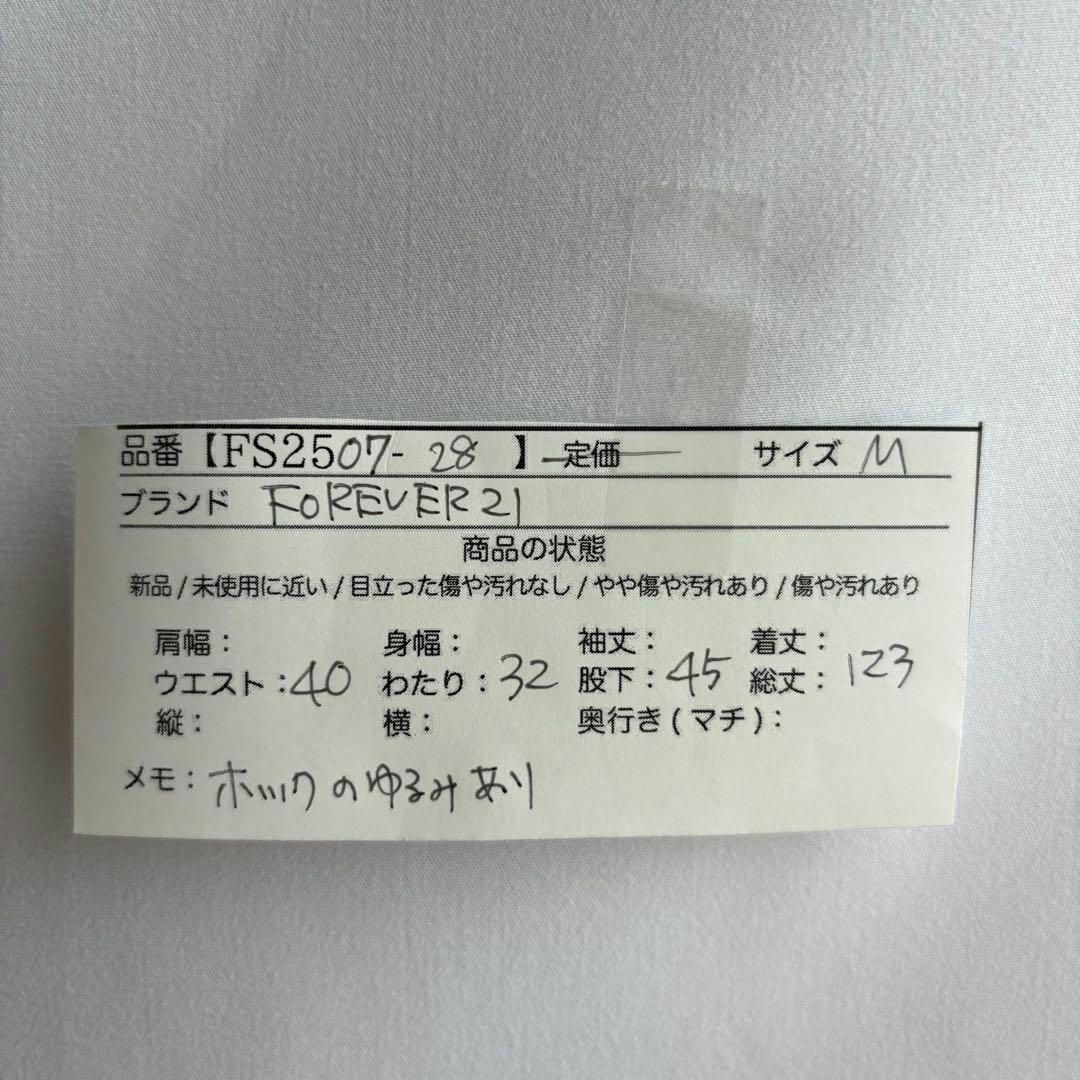 品番【FS2507-28】定価 サイズ M
ブランド FOREVER21
商品の状態
新品/未使用に近い/目立った傷や汚れなし/やや傷や汚れあり/傷や汚れあり
肩幅: 身幅: 袖丈: 着丈:
ウエスト:40 わたり:32 股下:45 総丈:123
縦: 横: 奥行き(マチ):
メモ:ホックのゆるみあり